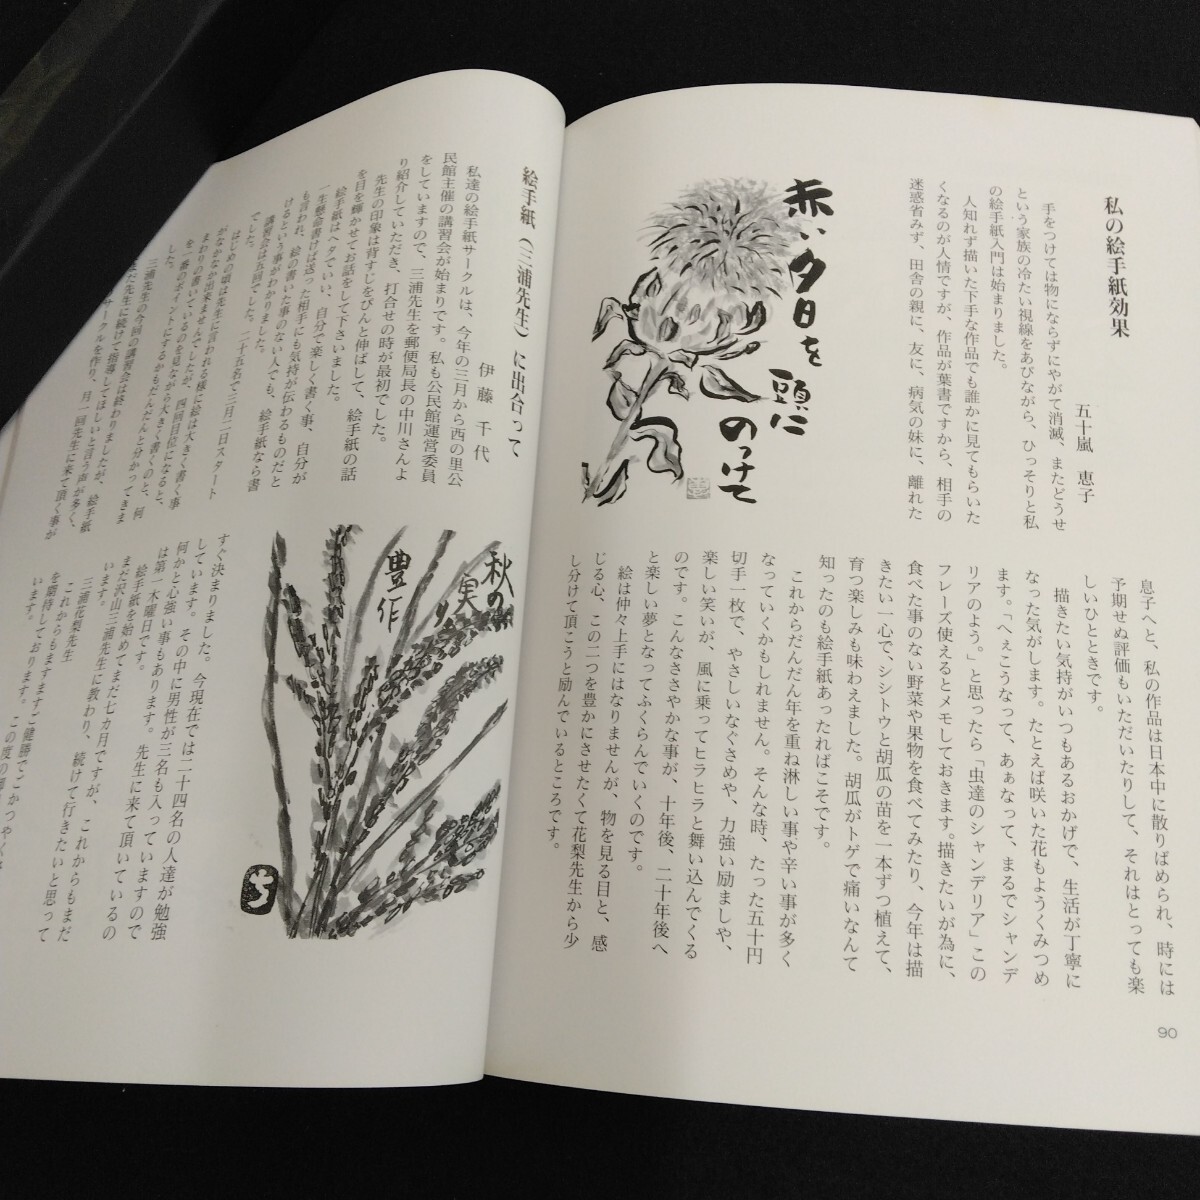 私の絵手紙効果
五十嵐 恵子
手をつけては物にならずにやがて消滅、またどうせ
という家族の冷たい視線をあびながら、ひっそりと私
の絵手紙入門は始まりました。
人知れず描いた下手な作品でも誰かに見てもらいた
くなるのが人情ですが、作品が葉書ですから、相手の
迷惑省みず、田舎の親に、友に、病気の妹に、離れた
赤い夕日を
頭に
のっけて
息子へと、私の作品は日本中に散りばめられ、時には
予期せぬ評価もいただいたりして、それはとっても楽
しいひとときです。
描きたい気持がいつもあるおかげで、生活が丁寧に
なった気がします。たとえば咲いた花もようくみつめ
ます。「へぇこうなって、あぁなって、まるでシャンデ
リアのよう。」と思ったら「虫達のシャンデリア」この
フレーズ使えるとメモしておきます。描きたいが為に、
食べた事のない野菜や果物を食べてみたり、今年は描
きたい一心で、シシトウと胡瓜の苗を一本ずつ植えて、
育つ楽しみも味わえました。胡瓜がトゲで痛いなんて
知ったのも絵手紙あったればこそです。
これからだんだん年を重ね淋しい事や辛い事が多く
なっていくかもしれません。そんな時、たった五十円
切手一枚で、やさしいなぐさめや、力強い励ましや、
楽しい笑いが、風に乗ってヒラヒラと舞い込んでくる
のです。こんなささやかな事が、十年後、二十年後へ
と楽しい夢となってふくらんでいくのです。
絵は仲々上手にはなりませんが、物を見る目と、感
じる心、この二つを豊かにさせたくて花梨先生から少
し分けて頂こうと励んでいるところです。
90
絵手紙(三浦先生)に出合って
伊藤 千代
私達の絵手紙サークルは、今年の三月から西の里公
民館主催の講習会が始まりです。私も公民館運営委員
をしていますので、三浦先生を郵便局長の中川さんよ
り紹介していただき、打合せの時が最初でした。
先生の印象は背すじをぴんと伸ばして、絵手紙の話
を目を輝かせてお話をして下さいました。
絵手紙はヘタでいい、自分で楽しく書く事、自分が
一生懸命書けば送った相手にも気持が伝わるものだと
も言われ、絵の書いた事のない人でも、絵手紙なら書
けるという事がわかりました。
講習会は五回でした。二十五名で三月二日スタート
でした。
はじめの頃は先生に言われる様に絵は大きく書く事
がなかなか出来ませんでしたが、四回目位になると、
まわりの書いているのを見ながら大きく書くのと、何
を一番のポイントにするかもだんだんと分かってきま
した。
三浦先生の今回の講習会は終わりましたが、絵手紙
まだ先生に続けて指導してほしいと言う声が多く、
サークルを作り、月一回先生に来て頂く事が
秋の
実り
豊作
ち
すぐ決まりました。今現在では二十四名の人達が勉強
しています。その中に男性が三名も入っていますので
何かと心強い事もあります。先生に来て頂いているの
は第一木曜日です。
絵手紙を始めてまだ七カ月ですが、これからもまだ
まだ沢山三浦先生に教わり、続けて行きたいと思って
います。
三浦花梨先生
これからもますますご健勝でごかつやく
を期待しております。この度の
います。